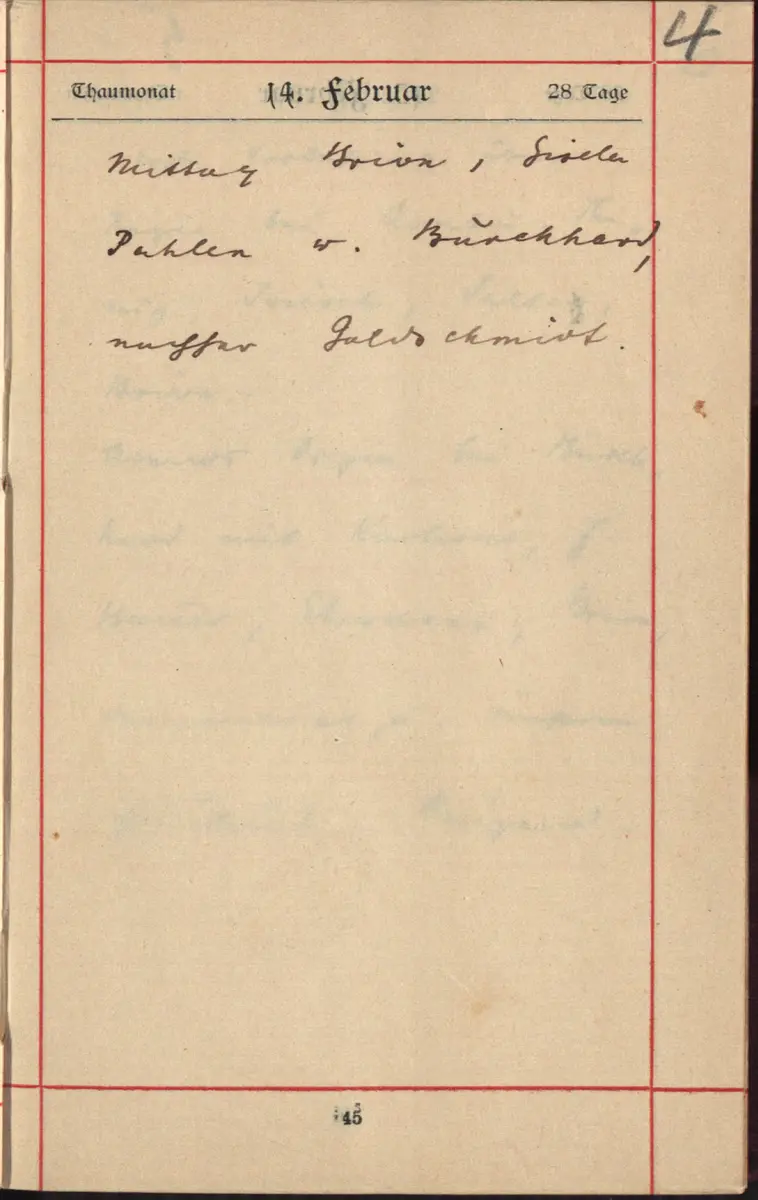 4
Thaumonat 14. Februar 28 Tage
Mittag Brion, Gisela
Pahlen u. Burckhard,
nachher Goldschmidt.
45